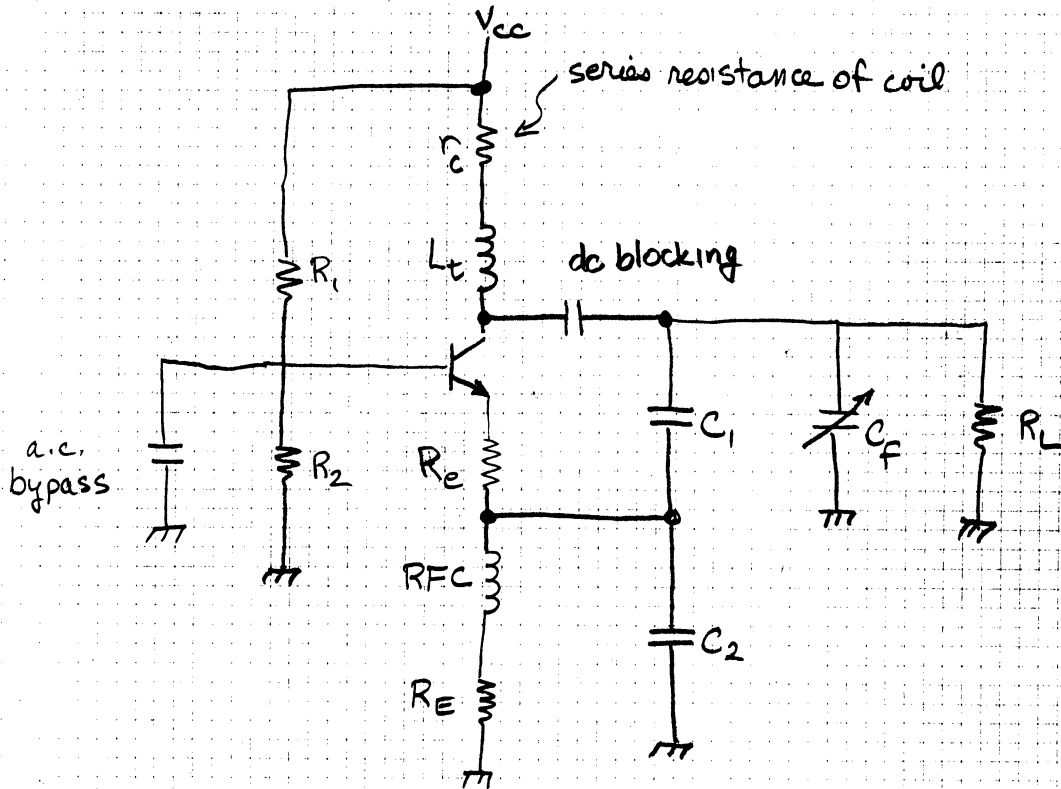 Vcc
series resistance of coil
rc
Lt
dc blocking
R1
a.c.
bypass
R2
Re
C1
Cf
RL
RFC
C2
RE